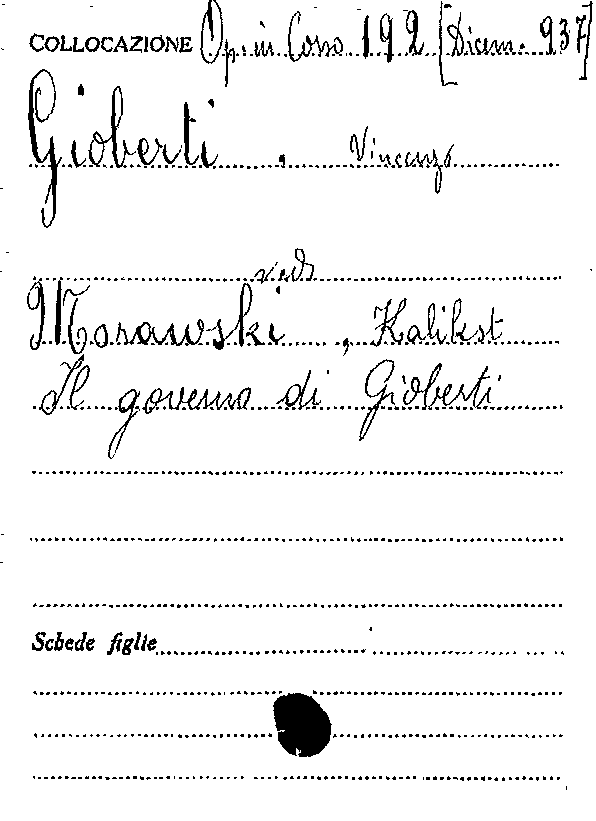 COLLOCAZIONE Op. in Corso 192 [Dicem. 937]
Gioberti, Vincenzo
vedi
Morawski, Kalikst
Il governo di Gioberti
Schede figlie